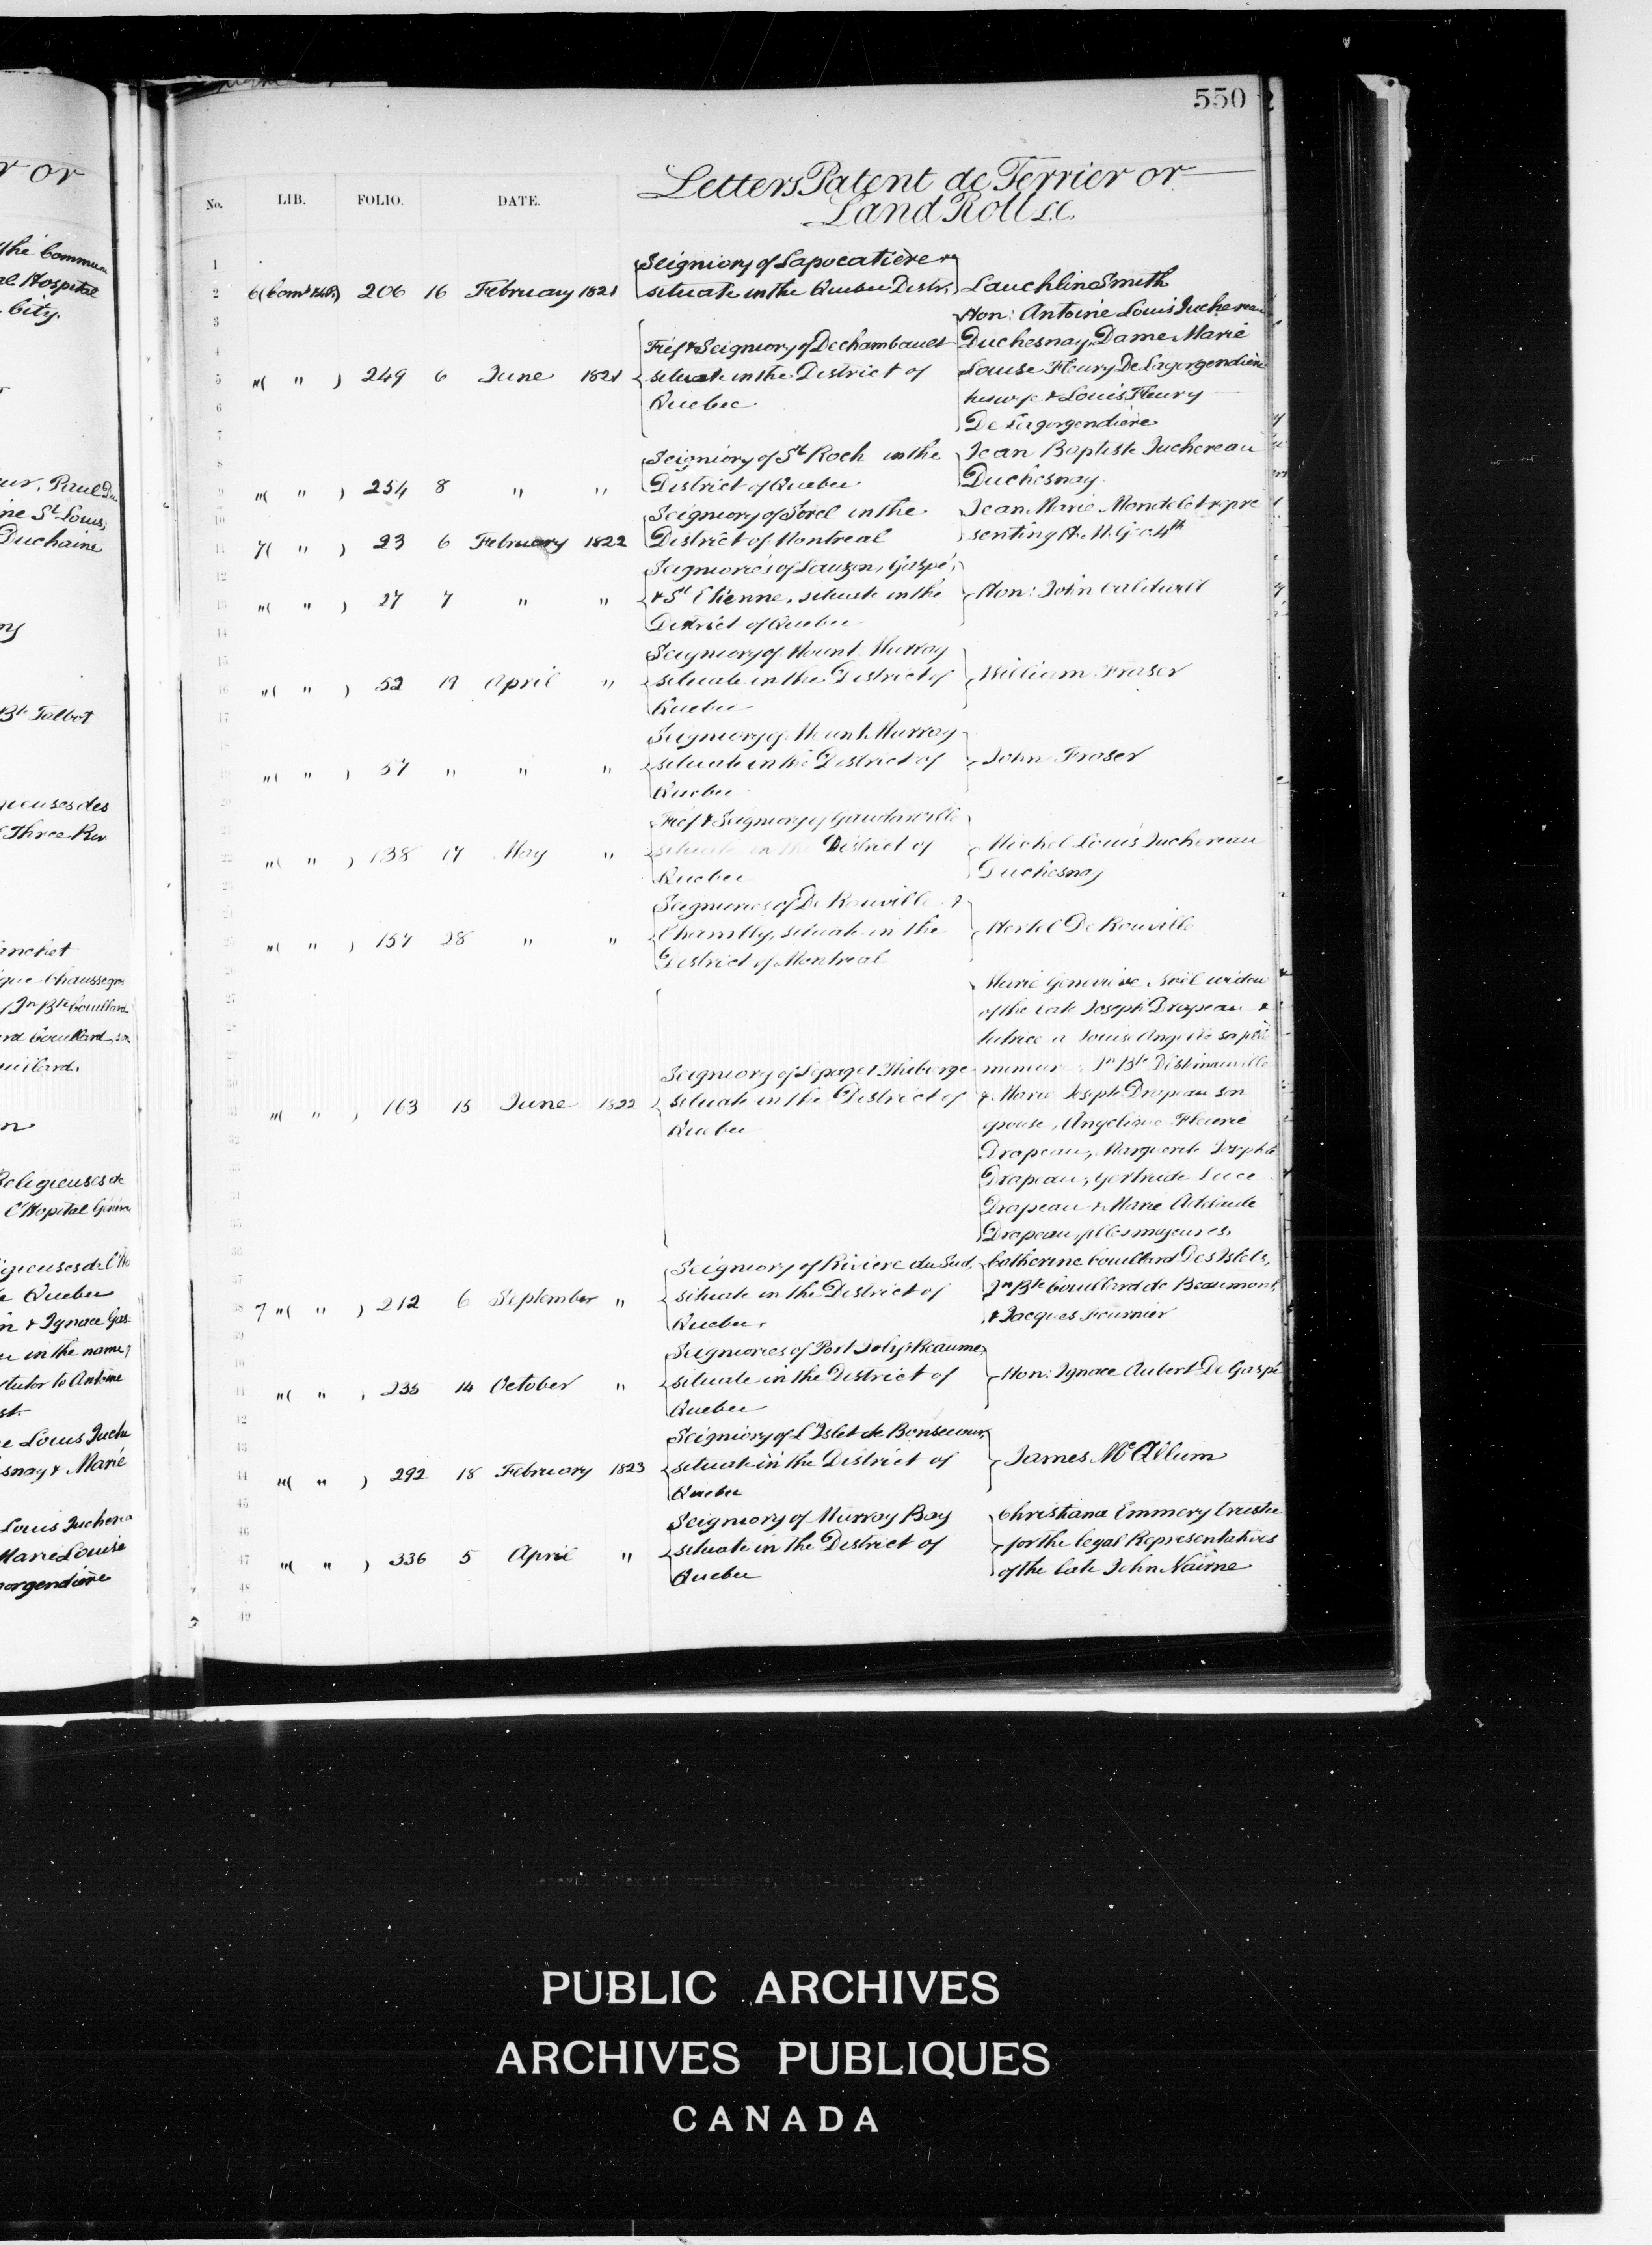 550
Letters Patent de Terrier or
Land Roll &c.
No. LIB. FOLIO. DATE.
Seigniory of Lapocatière
6 (Comd Lib.) 206 16 February 1821 situate in the Quebec Distr. Lauchline Smith
Hon: Antoine Louis Juchereau
Fief & Seigniory of Dechambault Duchesnay, Dame Marie
" ( " ) 249 6 June 1821 situate in the District of Louise Fleury De Lagorgendière
Quebec his wife & Louis Fleury
De Lagorgendière
Seigniory of St Roch in the Jean Baptiste Juchereau
" ( " ) 254 8 " " District of Quebec Duchesnay
Seigniory of Sorel in the Jean Marie Mondelet repre
7 ( " ) 23 6 February 1822 District of Montreal senting H. M. Geo. 4th
Seigniories of Lauzon, Gaspé,
" ( " ) 27 7 " " & St Etienne, situate in the Hon: John Caldwell
District of Quebec
Seigniory of Mount Murray
" ( " ) 52 19 April " situate in the District of William Fraser
Quebec
Seigniory of Mount Murray
" ( " ) 57 " " " situate in the District of John Fraser
Quebec
Fief & Seigniory of Gaudarville
" ( " ) 138 17 May " situate in the District of Michel Louis Juchereau
Quebec Duchesnay
Seigniories of De Rouville &
" ( " ) 157 28 " " Chambly, situate in the Hertel De Rouville
District of Montreal
Marie Genevieve Noël widow
of the late Joseph Drapeau &
tutrice a Louise Angele sa fille
Seigniory of Lepage & Thibierge mineure, Jn Bte D'Estimauville
" ( " ) 163 15 June 1822 situate in the District of & Marie Joseph Drapeau son
Quebec epouse, Angelique Flavie
Drapeau, Marguerite Josephte
Drapeau, Gertrude Luce
Drapeau & Marie Adelaide
Drapeau, filles majeures.
Seigniory of Riviere du Sud, Catherine Couillard Des Islets,
7 " ( " ) 212 6 September " situate in the District of Jn Bte Couillard de Beaumont,
Quebec. & Jacques Fournier
Seigniories of Port Joly & Reaume,
" ( " ) 235 14 October " situate in the District of Hon: Ignace Aubert De Gaspé
Quebec
Seigniory of L'Islet de Bonsecour,
" ( " ) 292 18 February 1823 situate in the District of James McCallum
Quebec
Seigniory of Murray Bay Christiana Emmery trustee
" ( " ) 336 5 April " situate in the District of for the legal Representatives
Quebec of the late John Nairne
PUBLIC ARCHIVES
ARCHIVES PUBLIQUES
CANADA